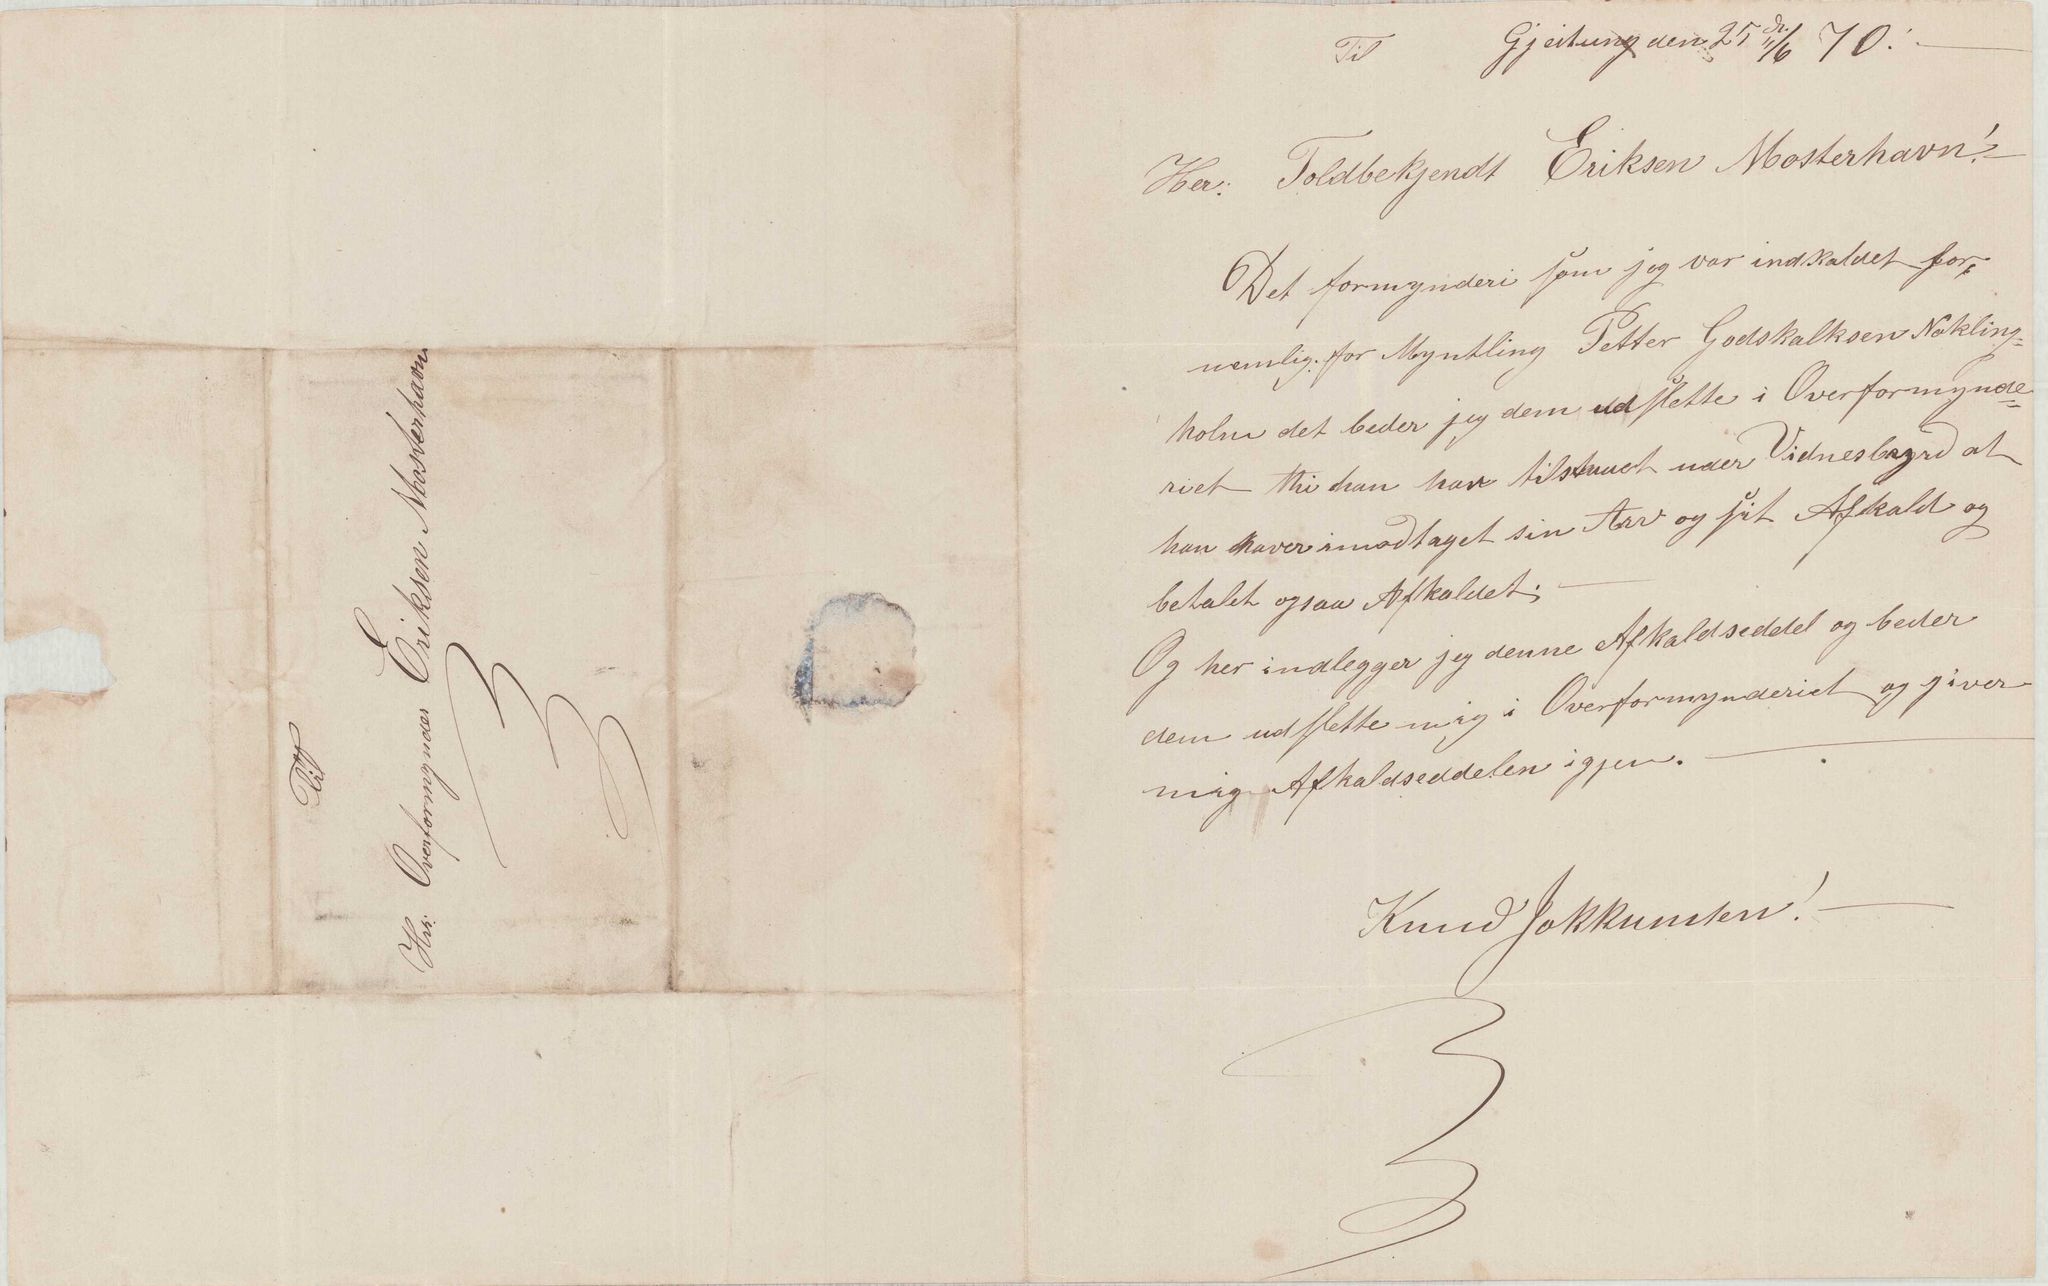 Til
Hr: Overformynder Eriksen Mosterhavn
Til Gjeitung den 25 6 70.
Her: Toldbekjendt Eriksen Mosterhavn!
Det formynderi som jeg var indkaldet for,
nemlig: for Myntling Petter Godskalksen Nokling=
holm det beder jeg dem udslette i Overformynde=
riet thi han har tilstaaet under Vidnesbyrd at
han haver imodtaget sin Arv og sit Afkald og
betalt ogsaa Afkaldet;
Og her indlegger jeg denne Afkaldseddel og beder
dem udslette mig i Overformynderiet og giver
mig Afkaldseddelen igjen.
Knud Jokkumsen!